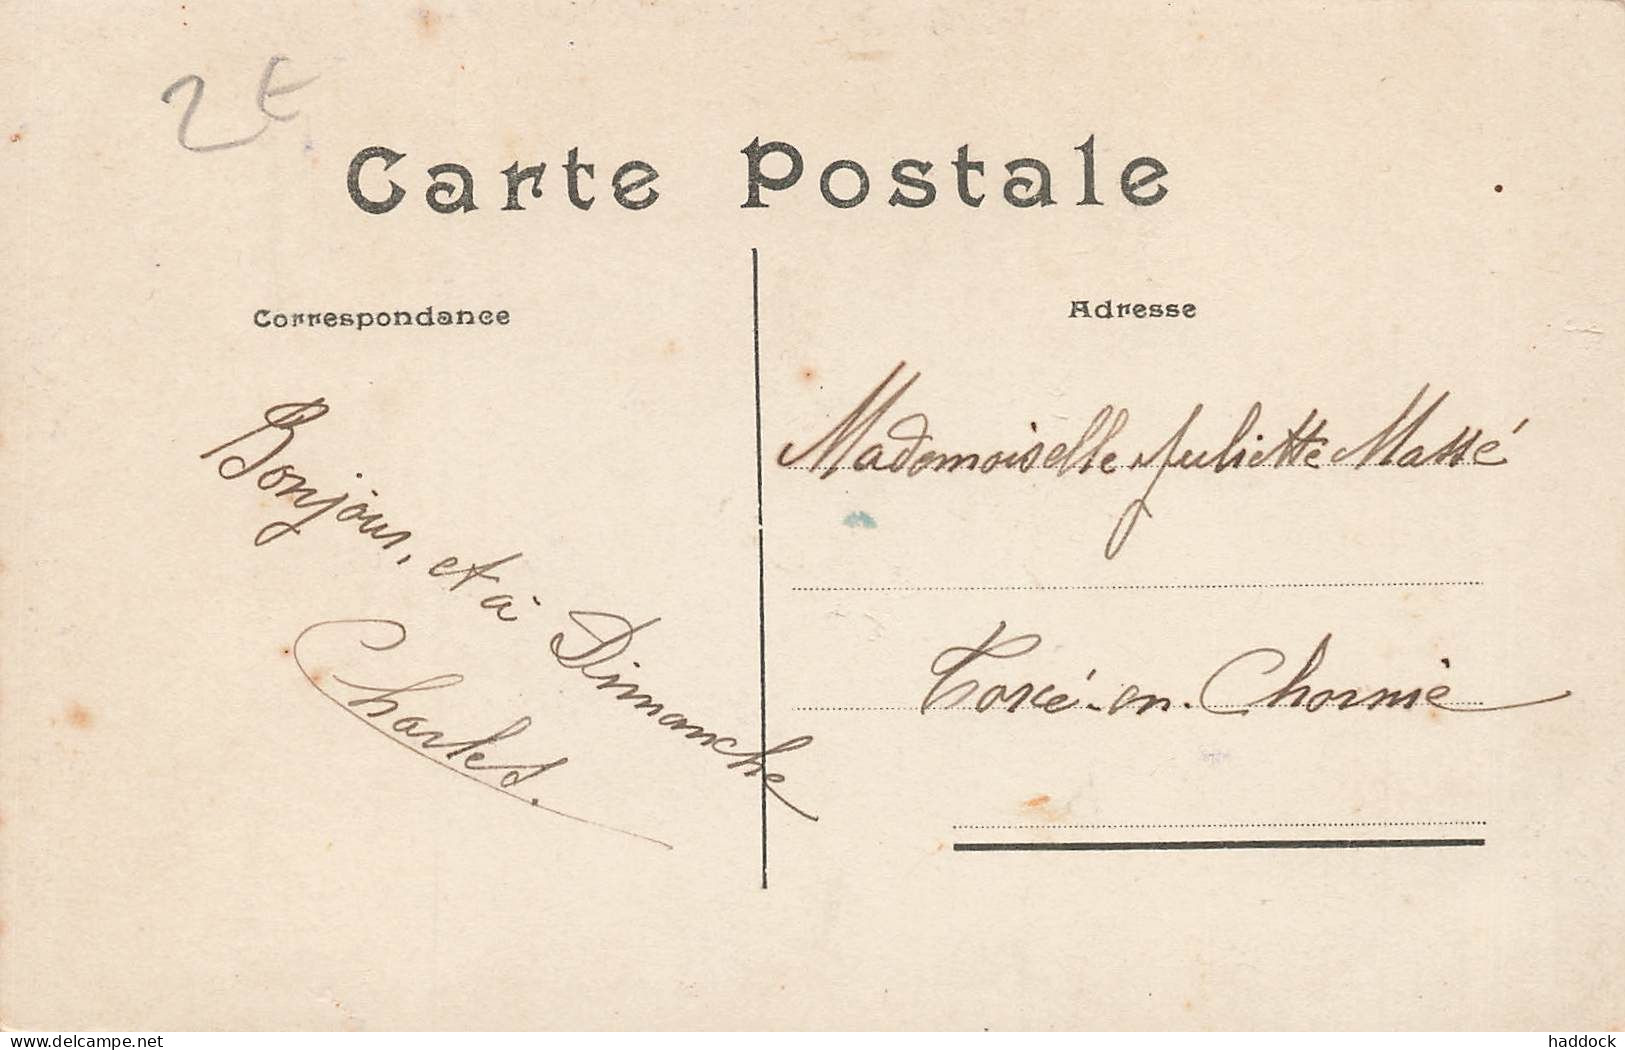 2€
Carte Postale
Correspondance
Adresse
Bonjour, et à Dimanche
Charles.
Mademoiselle Juliette Massé
Torcé-en-Charnie
www.delcampe.net
haddock